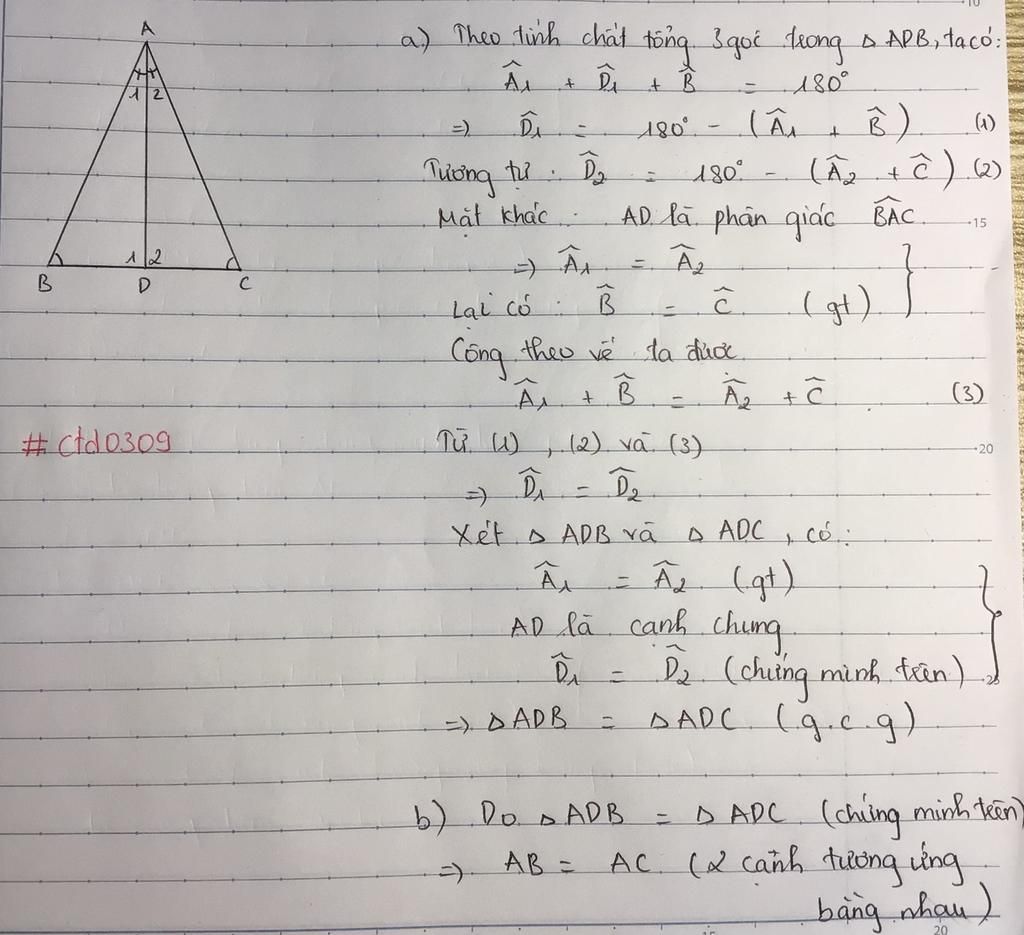 A
1 2
1 2
B
D
C
#ctd0309
a) Theo tính chất tổng 3 góc trong △ ADB, ta có:
Â₁ + D̂₁ + B̂ = 180°
=> D̂₁ = 180° - (Â₁ + B̂) (1)
Tương tự : D̂₂ = 180° - (Â₂ + Ĉ) (2)
Mặt khác : AD là phân giác B̂AC
=> Â₁ = Â₂
Lại có : B̂ = Ĉ (gt)
Cộng theo vế ta được
Â₁ + B̂ = Â₂ + Ĉ (3)
Từ (1), (2) và (3)
=> D̂₁ = D̂₂
Xét △ ADB và △ ADC, có:
Â₁ = Â₂ (gt)
AD là cạnh chung
D̂₁ = D̂₂ (chứng minh trên)
=> △ADB = △ADC (g.c.g)
b) Do △ADB = △ADC (chứng minh trên)
=> AB = AC (2 cạnh tương ứng
bằng nhau)
15
20
20